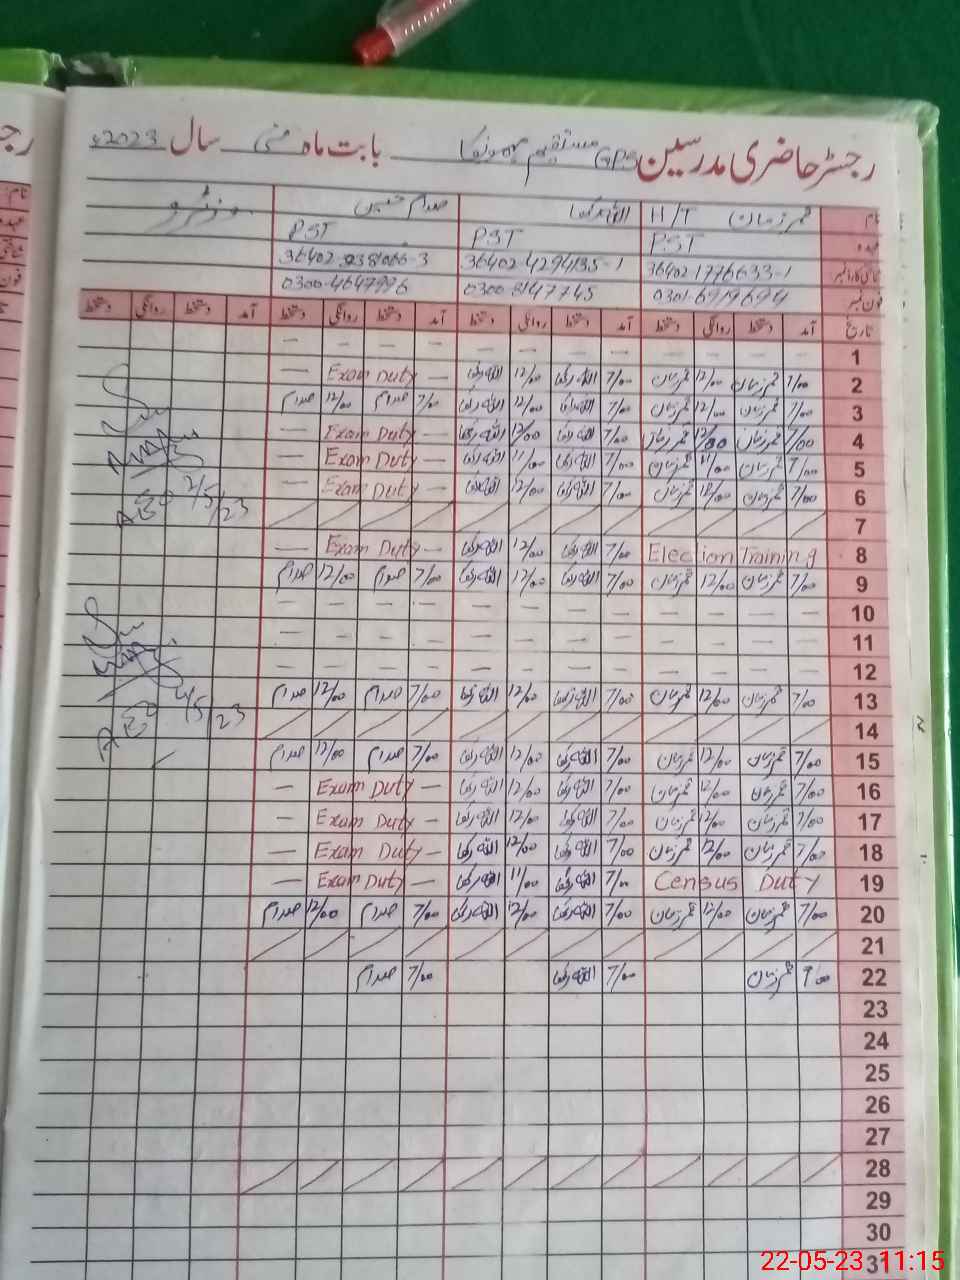 رجسٹر حاضری مدرسین GPS مستقیم بابت ماہ مئی سال 2023ء
نام قمر زمان H/T اللہ رکھا صدام حسین
عہدہ PST PST PST
شناختی کارڈ نمبر 36402-1776633-1 36402-4294135-1
فون نمبر 0301-6919694 0300-8147745 0300-4647996
تاریخ آمد دستخط روانگی دستخط آمد دستخط روانگی دستخط آمد دستخط روانگی دستخط آمد دستخط روانگی دستخط
1 — — — — — — — — — — — —
2 7/00 قمر زمان 12/00 قمر زمان 7/00 اللہ رکھا 12/00 اللہ رکھا — Exam Duty —
3 7/00 قمر زمان 12/00 قمر زمان 7/00 اللہ رکھا 12/00 اللہ رکھا 7/00 صدام 12/00 صدام
4 7/00 قمر زمان 12/00 قمر زمان 7/00 اللہ رکھا 12/00 اللہ رکھا — Exam Duty —
5 7/00 قمر زمان 11/00 قمر زمان 7/00 اللہ رکھا 11/00 اللہ رکھا — Exam Duty —
6 7/00 قمر زمان 12/00 قمر زمان 7/00 اللہ رکھا 12/00 اللہ رکھا — Exam Duty —
AEO 2/5/23
7 / / / / / / / / / / / /
8 Election Training 7/00 اللہ رکھا 12/00 اللہ رکھا — Exam Duty —
9 7/00 قمر زمان 12/00 قمر زمان 7/00 اللہ رکھا 12/00 اللہ رکھا 7/00 صدام 12/00 صدام
10 — — — — — — — — — — — —
11 — — — — — — — — — — — —
12 — — — — — — — — — — — —
13 7/00 قمر زمان 12/00 قمر زمان 7/00 اللہ رکھا 12/00 اللہ رکھا 7/00 صدام 12/00 صدام
AEO /5/23
14 / / / / / / / / / / / /
15 7/00 قمر زمان 12/00 قمر زمان 7/00 اللہ رکھا 12/00 اللہ رکھا 7/00 صدام 12/00 صدام
16 7/00 قمر زمان 12/00 قمر زمان 7/00 اللہ رکھا 12/00 اللہ رکھا — Exam Duty —
17 7/00 قمر زمان 12/00 قمر زمان 7/00 اللہ رکھا 12/00 اللہ رکھا — Exam Duty —
18 7/00 قمر زمان 12/00 قمر زمان 7/00 اللہ رکھا 12/00 اللہ رکھا — Exam Duty —
19 Census Duty 7/00 اللہ رکھا 11/00 اللہ رکھا — Exam Duty —
20 7/00 قمر زمان 12/00 قمر زمان 7/00 اللہ رکھا 12/00 اللہ رکھا 7/00 صدام 12/00 صدام
21 / / / / / / / / / / / /
22 7/00 قمر زمان 7/00 اللہ رکھا 7/00 صدام
23
24
25
26
27
28 / / / / / / / / / / / /
29
30
31
22-05-23 11:15